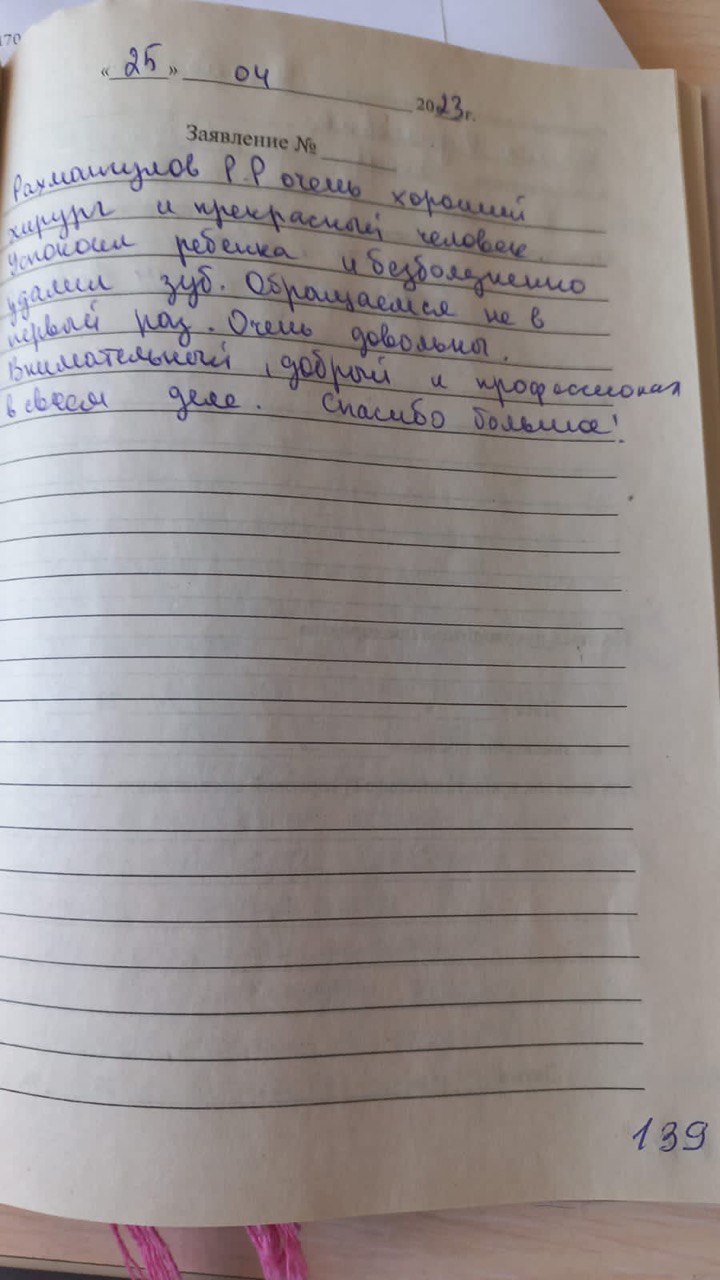 170
« 25 » 04 2023 г.
Заявление №
Рахматулов Р.Р очень хороший
хирург и прекрасный человек.
Успокоил ребенка и безболезненно
удалил зуб. Обращаемся не в
первый раз. Очень довольны.
Внимательный, добрый и професионал
в своем деле. Спасибо большое!
139